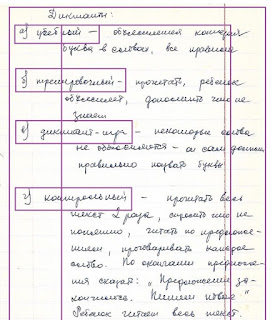 Диктанты:
а) учебный – объясняется каждая
буква в словах, все правила
б) тренировочный – прочитать, ребенок
объясняет, дополнить что не
знает
в) диктант-игра – некоторые слова
не объясняются – он сам должен
правильно назвать буквы
г) контрольный – прочитать весь
текст 2 раза, спросить что не
понятно, читать по предложе-
ниям, проговаривать каждое
слово. По окончании предложе-
ния сказать: „Предложение за-
кончилось. Пишем новое"
Ребенок читает весь текст.